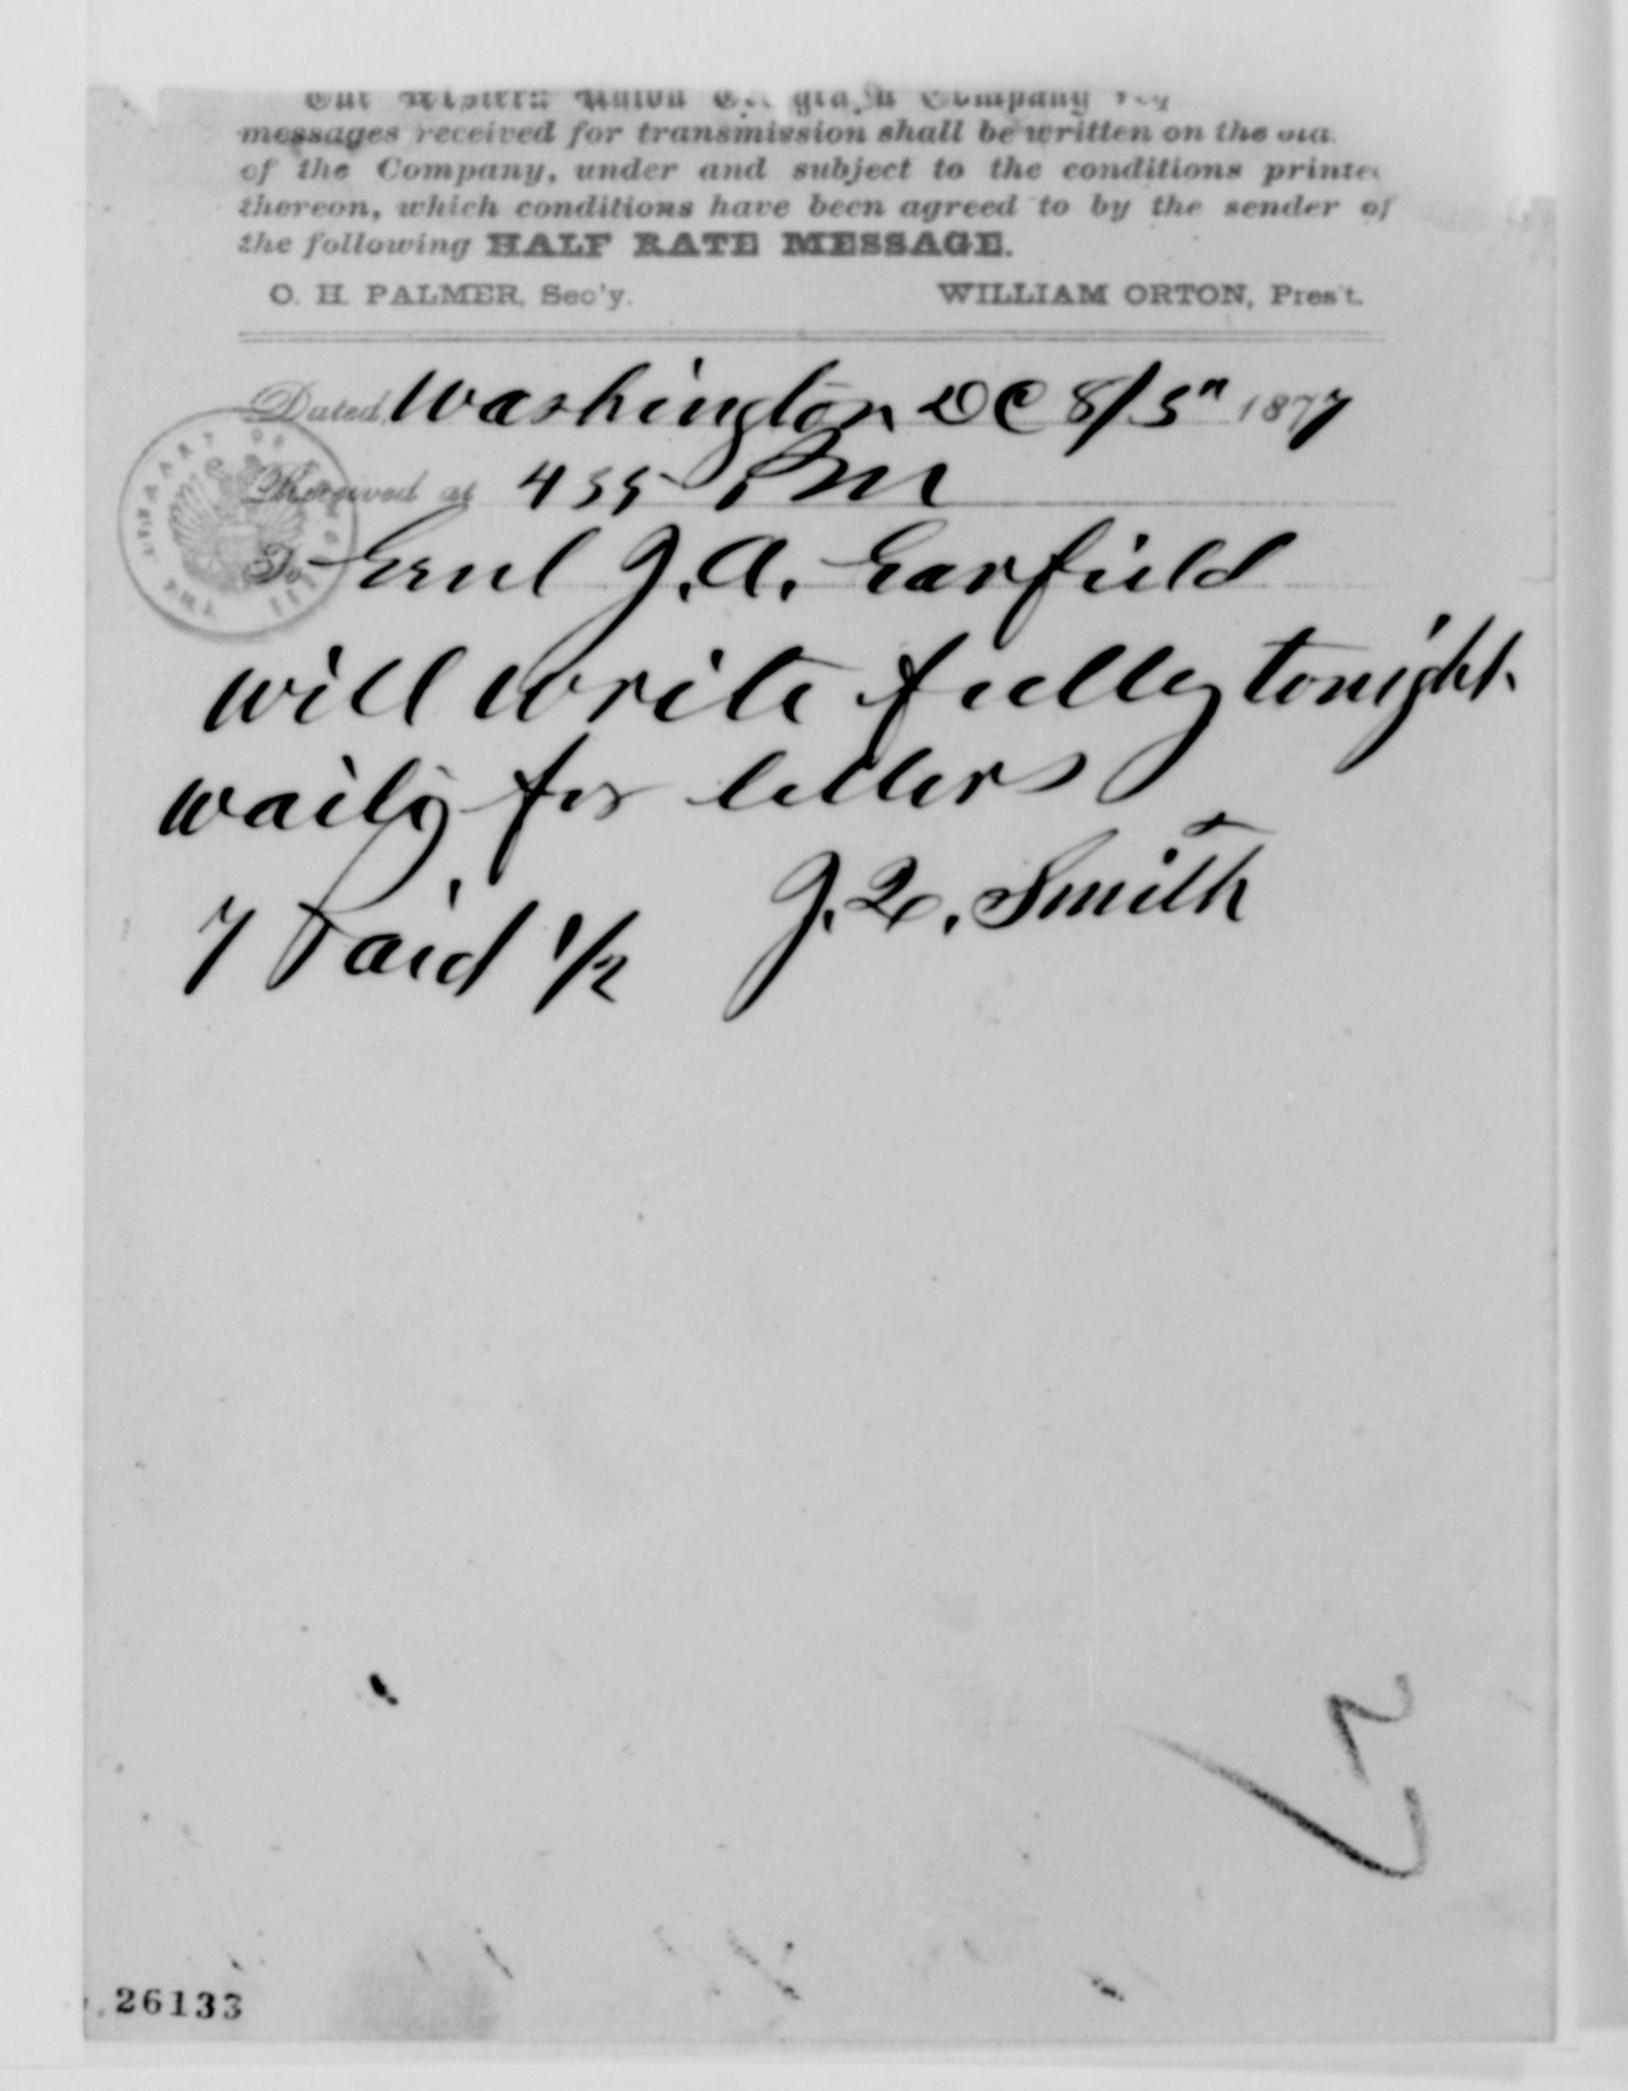 The Western Union Telegraph Company
messages received for transmission shall be written on the
of the Company, under and subject to the conditions printed
thereon, which conditions have been agreed to by the sender of
the following HALF RATE MESSAGE.
O. H. PALMER, Sec'y. WILLIAM ORTON, Pres't.
Dated, Washington DC 8/5" 1877
Received at 435 PM
To Genl J. A. Garfield
will write fully tonight.
wait for letters
J. Q. Smith
7 Paid 1/2
THE LIBRARY OF CONGRESS
26133